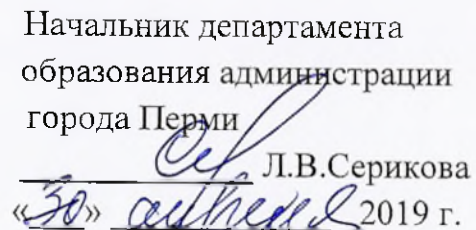 Начальник департамента
образования администрации
города Перми
Л.В.Серикова
«30» апреля 2019 г.